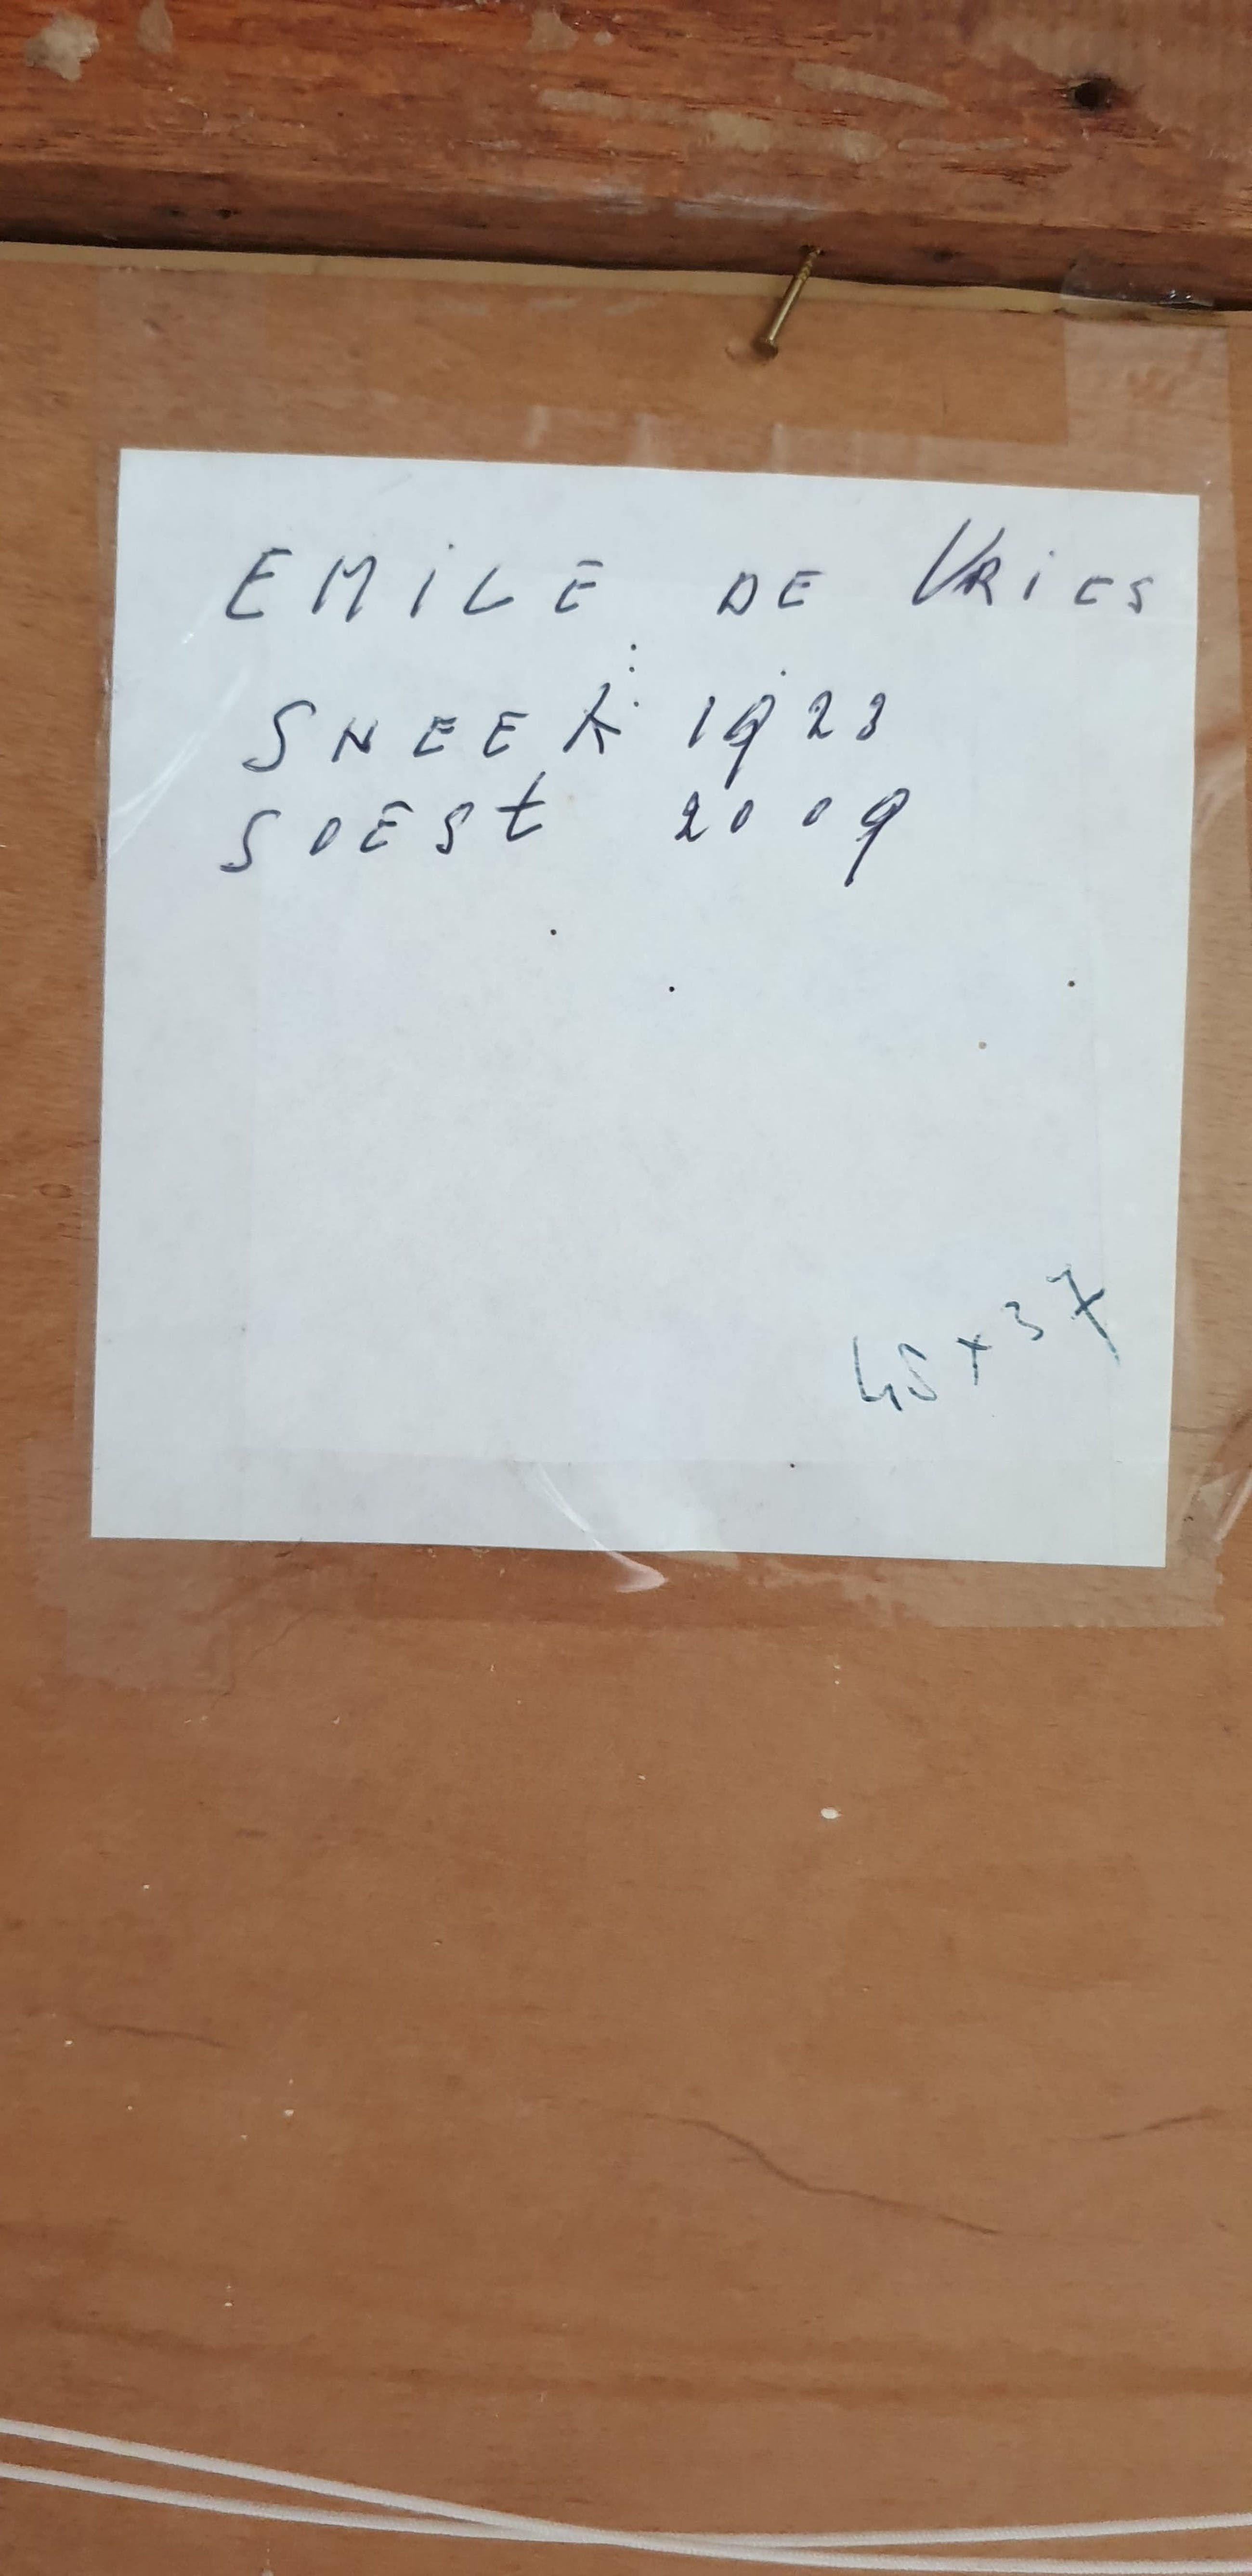 EMiLE DE VRiES
SNEEK 1923
SOESt 2009
45 x 37